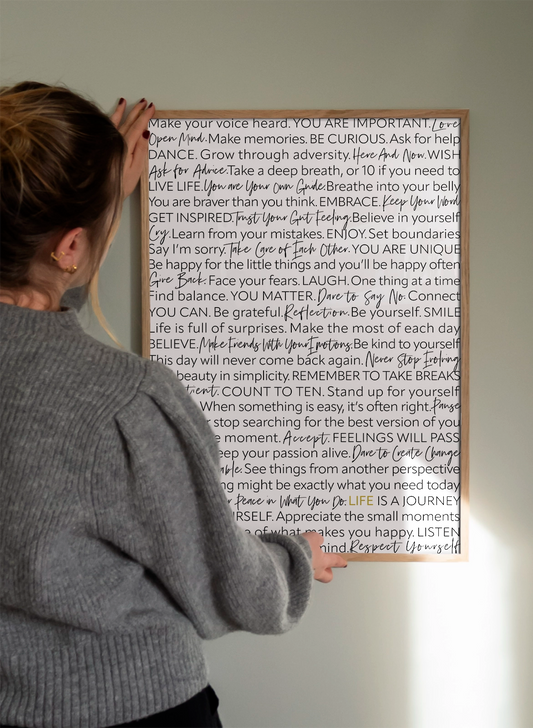 Make your voice heard. YOU ARE IMPORTANT. Love
Open Mind. Make memories. BE CURIOUS. Ask for help
DANCE. Grow through adversity. Here And Now. WISH
Ask for Advice. Take a deep breath, or 10 if you need to
LIVE LIFE. You are Your Own Guide. Breathe into your belly
You are braver than you think. EMBRACE. Keep Your Word
GET INSPIRED. Trust Your Gut Feeling. Believe in yourself
Cry. Learn from your mistakes. ENJOY. Set boundaries
Say I'm sorry. Take Care of Each Other. YOU ARE UNIQUE
Be happy for the little things and you'll be happy often
Give Back. Face your fears. LAUGH. One thing at a time
Find balance. YOU MATTER. Dare to Say No. Connect
YOU CAN. Be grateful. Reflection. Be yourself. SMILE
Life is full of surprises. Make the most of each day
BELIEVE. Make Friends With Your Emotions. Be kind to yourself
This day will never come back again. Never Stop Evolving
beauty in simplicity. REMEMBER TO TAKE BREAKS
COUNT TO TEN. Stand up for yourself
When something is easy, it's often right. Pause
stop searching for the best version of you
moment. Accept. FEELINGS WILL PASS
eep your passion alive. Dare to Create Change
able. See things from another perspective
ng might be exactly what you need today
Peace in What You Do. LIFE IS A JOURNEY
RSELF. Appreciate the small moments
of what makes you happy. LISTEN
mind. Respect Yourself